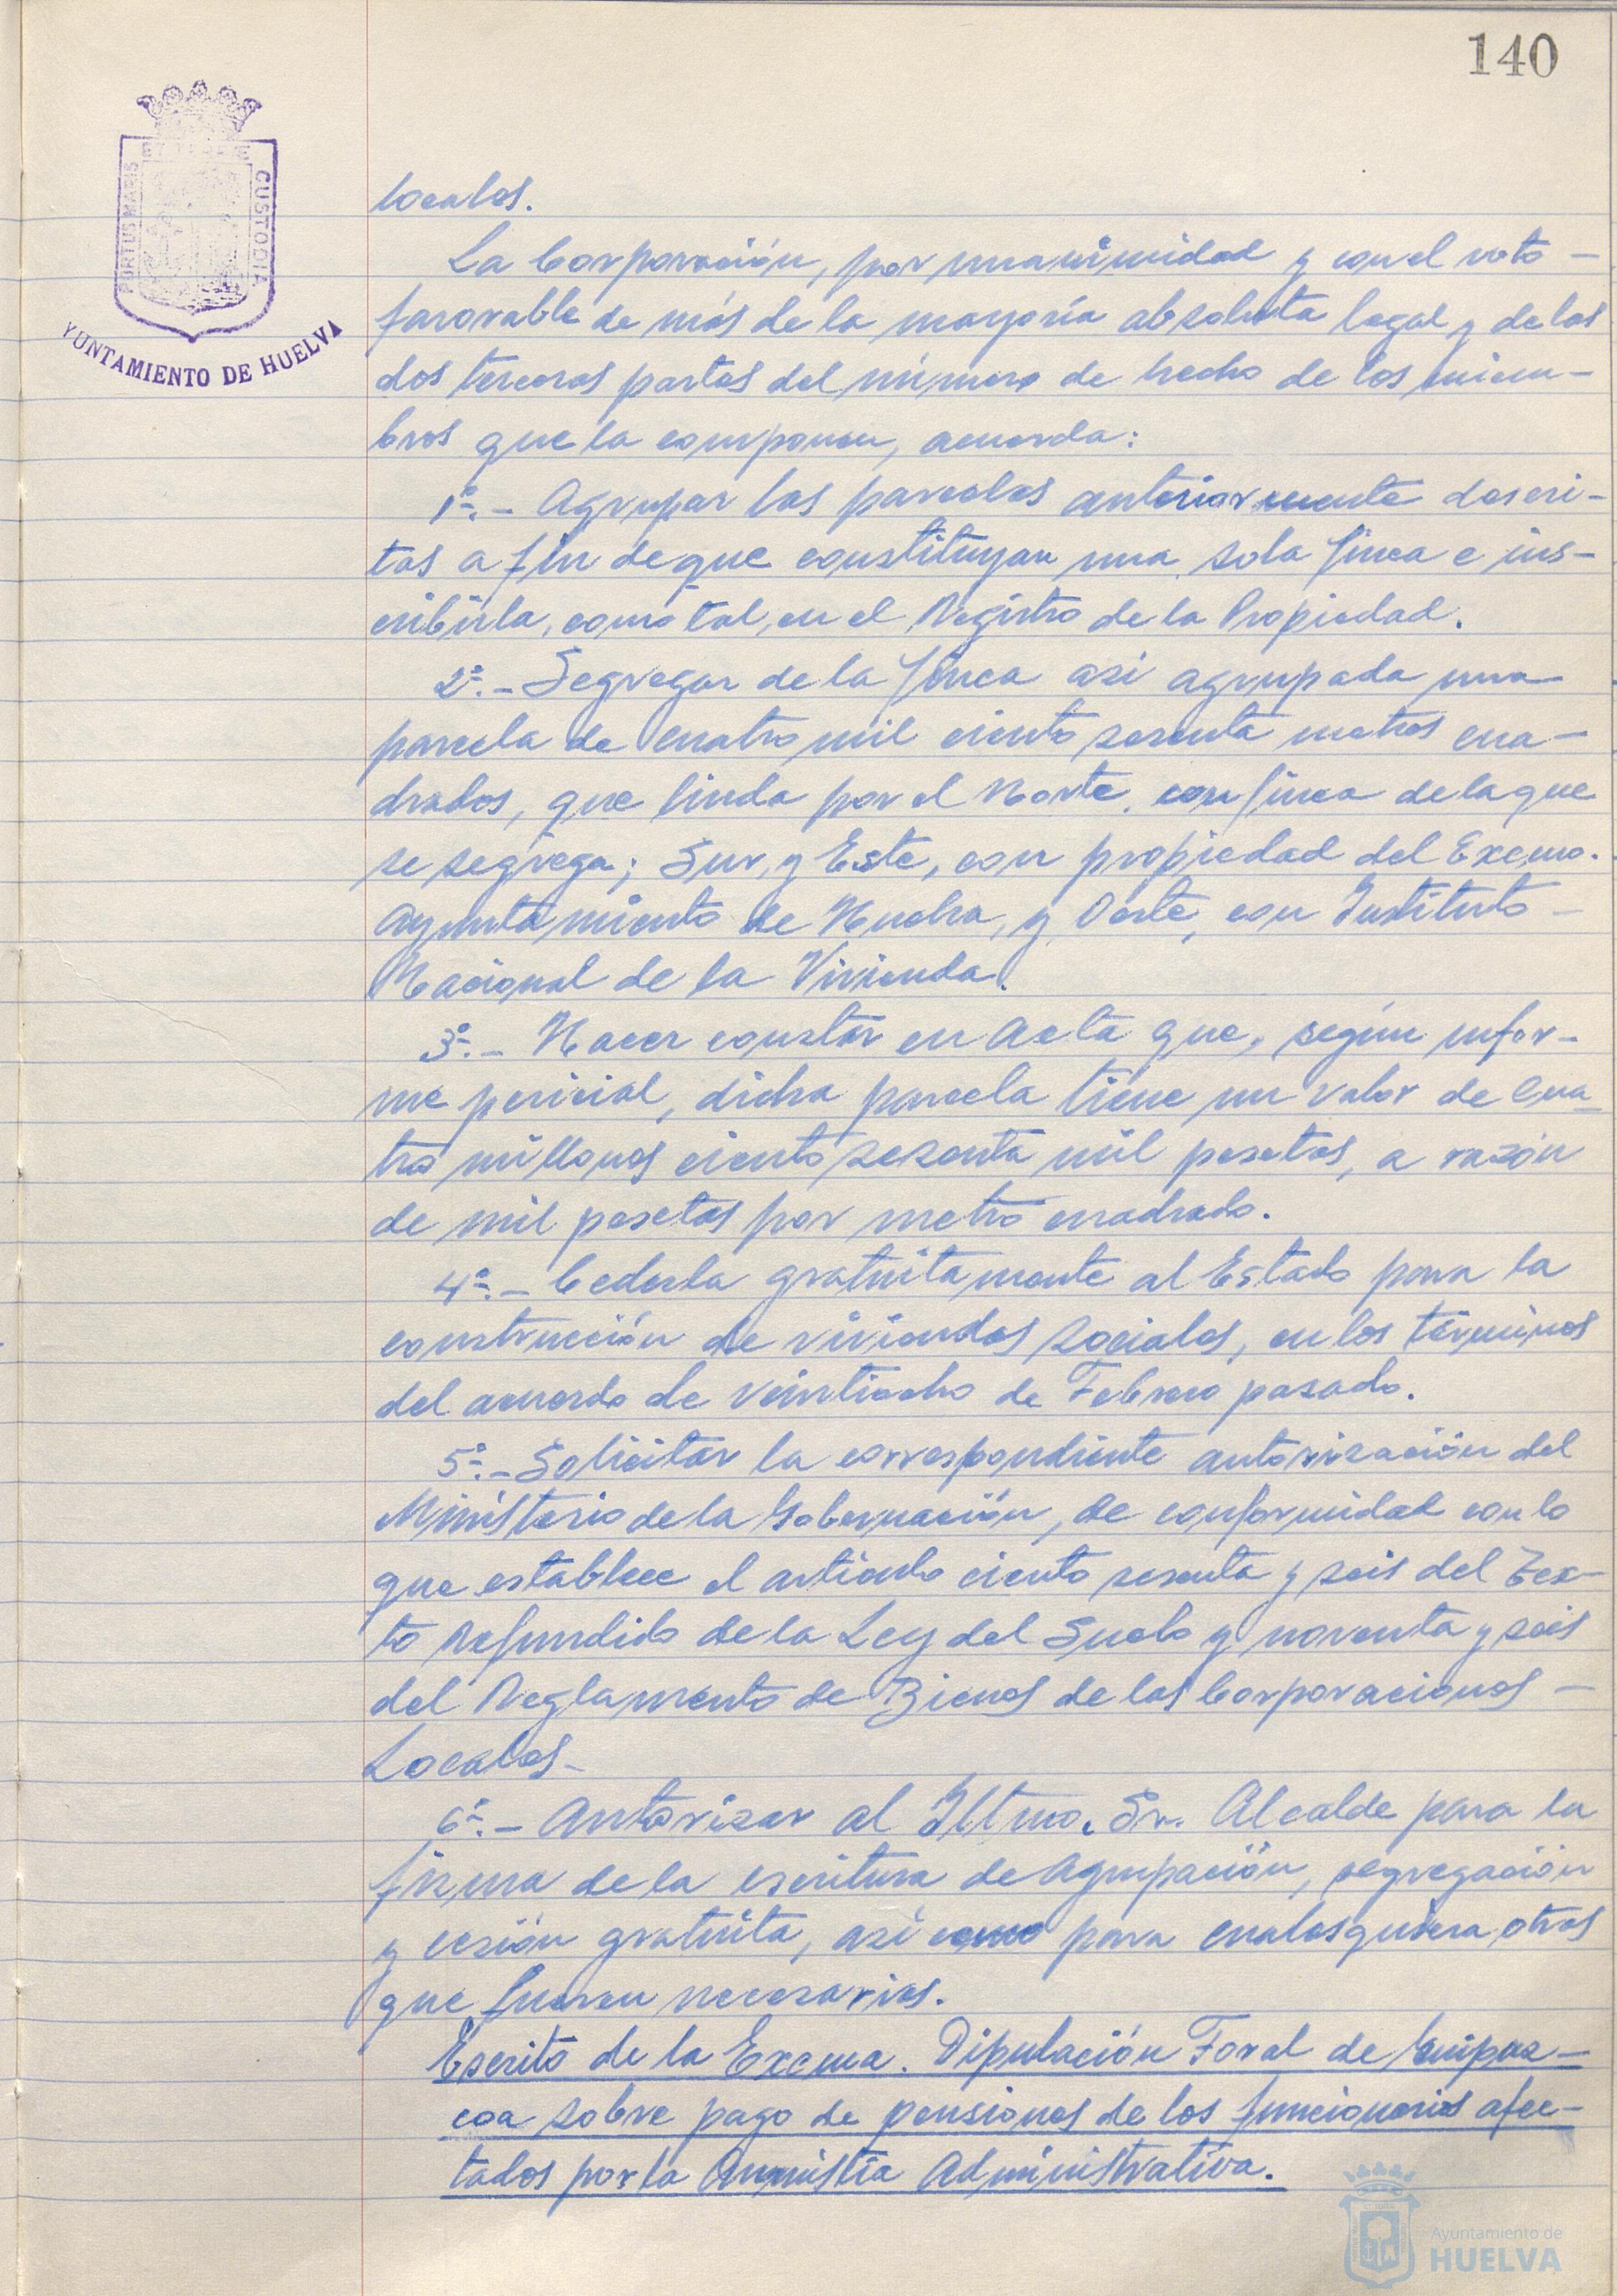 140
PORTUS MARIS
ET TERRAE
CUSTODIA
YUNTAMIENTO DE HUELVA
locales.
La Corporación, por unanimidad y con el voto -
favorable de más de la mayoría absoluta legal y de las
dos terceras partes del número de hecho de los miem-
bros que la componen, acuerda:
1º.- Agrupar las parcelas anteriormente descri-
tas a fin de que constituyan una sola finca e ins-
cribirla, como tal, en el Registro de la Propiedad.
2º.- Segregar de la finca asi agrupada una
parcela de cuatro mil ciento sesenta metros cua-
drados, que linda por el Norte, con finca de la que
se segrega; Sur, y Este, con propiedad del Excmo.
Ayuntamiento de Huelva, y Oeste, con Instituto -
Nacional de la Vivienda.
3º.- Hacer constar en Acta que, según infor-
me pericial, dicha parcela tiene un valor de cua-
tro millones ciento sesenta mil pesetas, a razón
de mil pesetas por metro cuadrado.
4º.- Cederla gratuitamente al Estado para la
construcción de viviendas sociales, en los términos
del acuerdo de veintiocho de Febrero pasado.
5º.- Solicitar la correspondiente autorización del
Ministerio de la Gobernación, de conformidad con lo
que establece el artículo ciento sesenta y seis del Tex-
to Refundido de la Ley del Suelo y noventa y seis
del Reglamento de Bienes de las Corporaciones -
Locales-
6º.- Autorizar al Iltmo. Sr. Alcalde para la
firma de la escritura de agrupación, segregación
y cesión gratuita, así como para cualesquiera otras
que fueren necesarias.
Escrito de la Excma. Diputación Foral de Guipuz-
coa sobre pago de pensiones de los funcionarios afec-
tados por la Amnistía Administrativa.
Ayuntamiento de
HUELVA